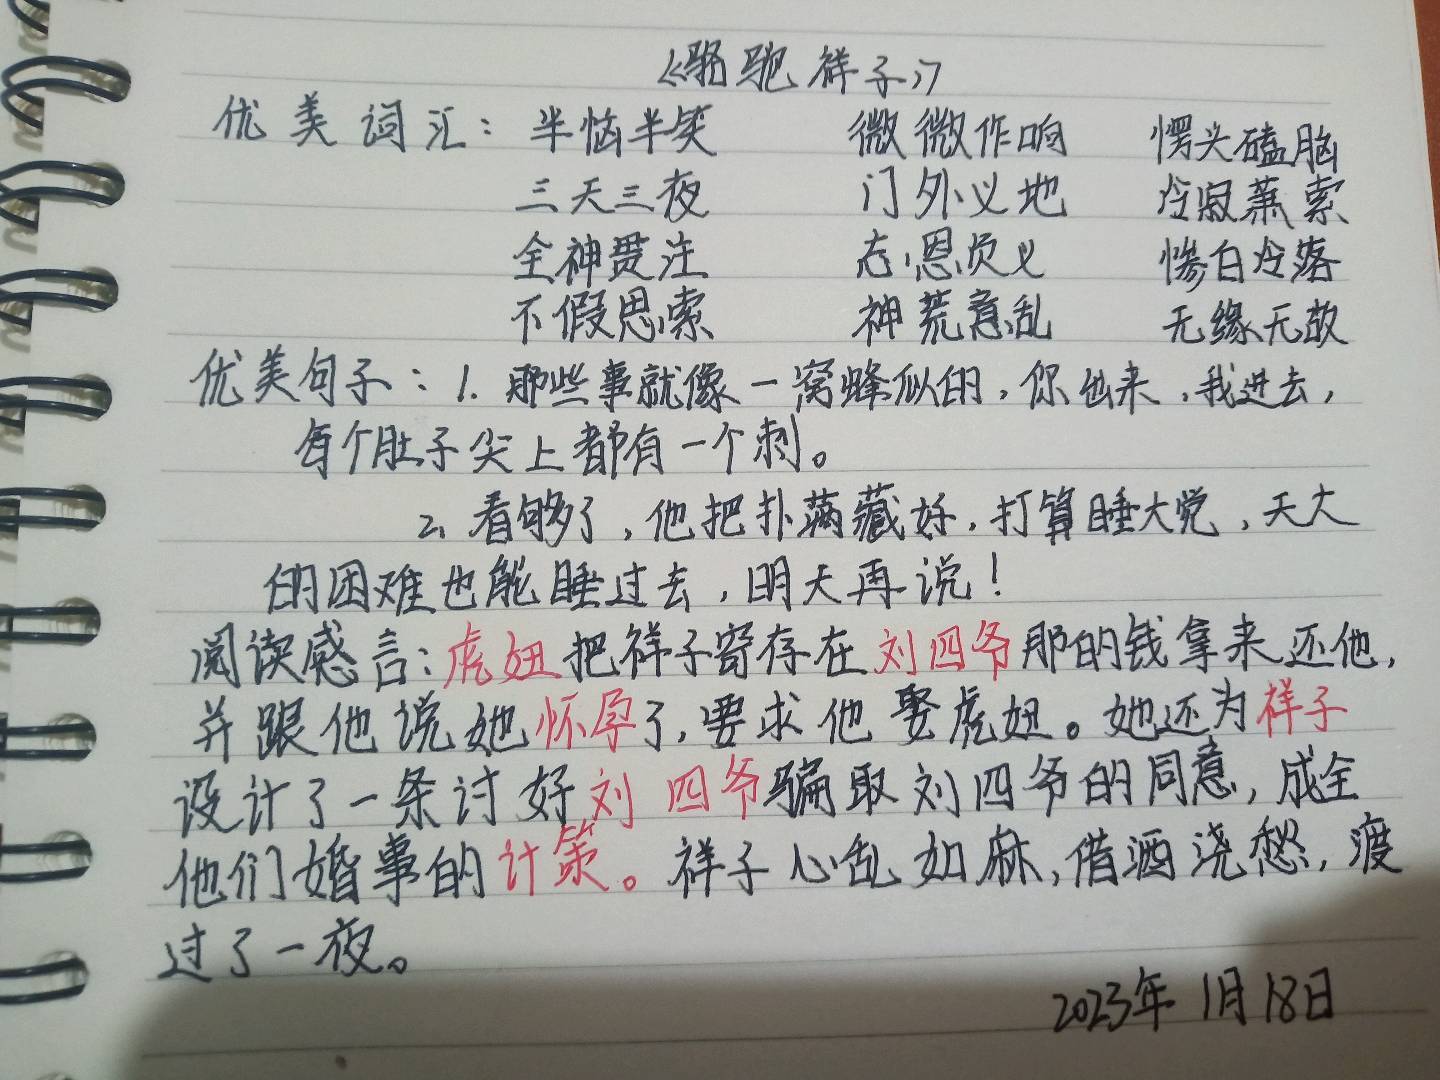 《骆驼祥子》
优美词汇：半恼半笑 微微作响 愣头磕脑
三天三夜 门外义地 冷寂萧索
全神贯注 忘恩负义 惨白冷落
不假思索 神荒意乱 无缘无故
优美句子：1.那些事就像一窝蜂似的，你出来，我进去，
每个肚子尖上都有一个刺。
2.看够了，他把扑满藏好，打算睡大觉，天大
的困难也能睡过去，明天再说！
阅读感言：虎妞把祥子寄存在刘四爷那的钱拿来还他，
并跟他说她怀孕了，要求他娶虎妞。她还为祥子
设计了一条讨好刘四爷骗取刘四爷的同意，成全
他们婚事的计策。祥子心乱如麻，借酒浇愁，渡
过了一夜。
2023年1月18日